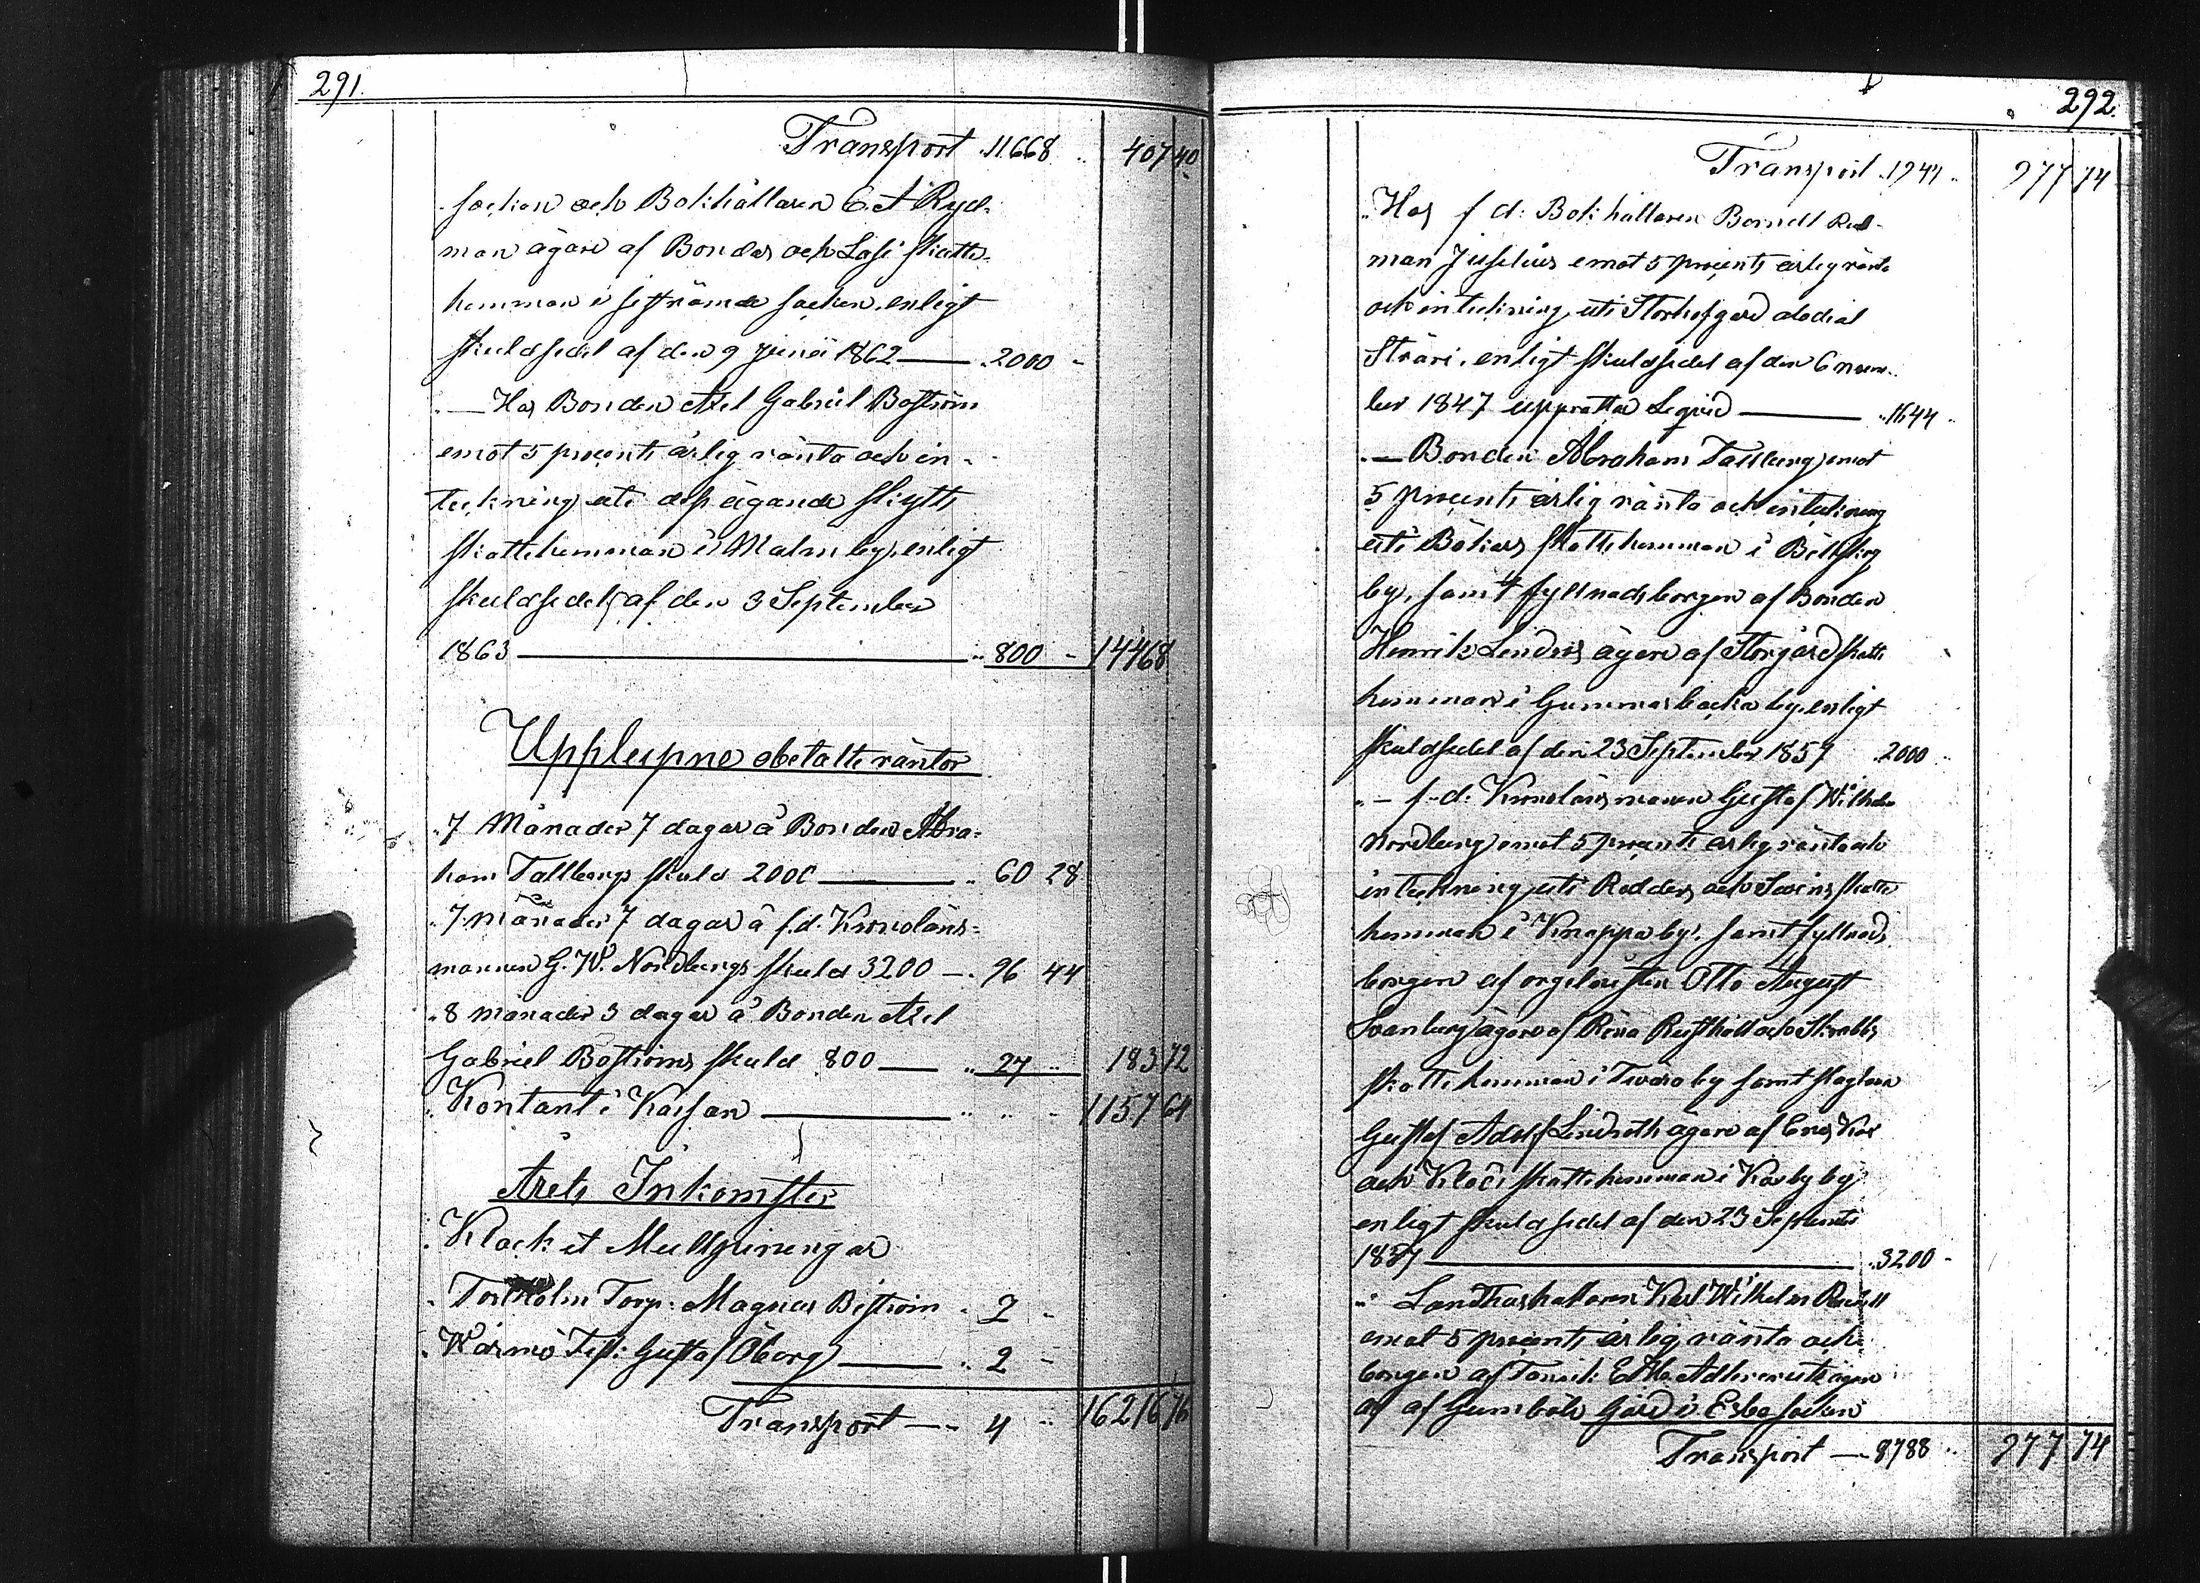 291.
Transport 11668 " 407 40
socken och Bokhållaren C. A Ryd-
man ägare af Bondas och Lasi skatte-
hemman i sistnämde socken, enligt
skuldsedel af den 9 Junii 1862 — 2000 -
" — Hos Bonden Axel Gabriel Boström
emot 5 procents årlig ränta och in-
teckning uti dess ägande Skytts
skattehemman i Malm by, enligt
skuldsedel af den 3 September
1863 — " 800 - 14468
Upplupne obetalte räntor
" 7 Månader 7 dagar å Bonden Abra-
ham Tallbergs skuld 2000 — " 60 28
" 7 månader 7 dagar å f.d. Kronoläns-
mannen G. W. Nordbergs skuld 3200 — " 96 44
" 8 månader 3 dagar å Bonden Axel
Gabriel Boströms skuld 800 — " 27 " 183 72
" Kontant i Kassan — " " - 1157 64
Årets Inkomster
Klock et Mullpenningar
" Torp: Magnus Biström " 2 -
" Wärmö Fisk: Gustaf Öberg — " 2 -
Transport — 4 " 16216 76
292.
Transport 1944 " 277 74
" Hos f d: Bokhållaren Berndt Red-
man Juselius emot 5 procents årlig ränta
och inteckning uti Storhofgård alodial
Säteri, enligt skuldsedel af den 6 novem-
ber 1847 upprättad — " 1644 "
" — Bonden Abraham Tallberg, emot
5 procents årlig ränta och inteckning
uti Bökars skattehemman i
by, samt fyllnadsborgen af Bonden
Henrik Lindros ägare af Storgård skatte
hemman i Gammelbacka by, enligt
skuldsedel af den 23 September 1857 2000 "
" — f-d: Kronolänsmannen Gustaf Wilhelm
Nordberg, emot 5 procents årlig ränta och
inteckning uti Redders och Svens skatte
hemman i Knappas by, samt fyllnads
borgen af orgelnisten Otto August
Svanberg ägare af Rusthåll och
skattehemman i by samt
Gustaf Adolf Lindroth ägare af
och skattehemman i by
enligt skuldsedel af den 23 Septemb
1857 — 3200 -
" Landtkamreraren Karl Wilhelm
emot 5 procents årlig ränta och
borgen af
af Gumböle Gård i Esbo socken
Transport — 8788 " 277 74